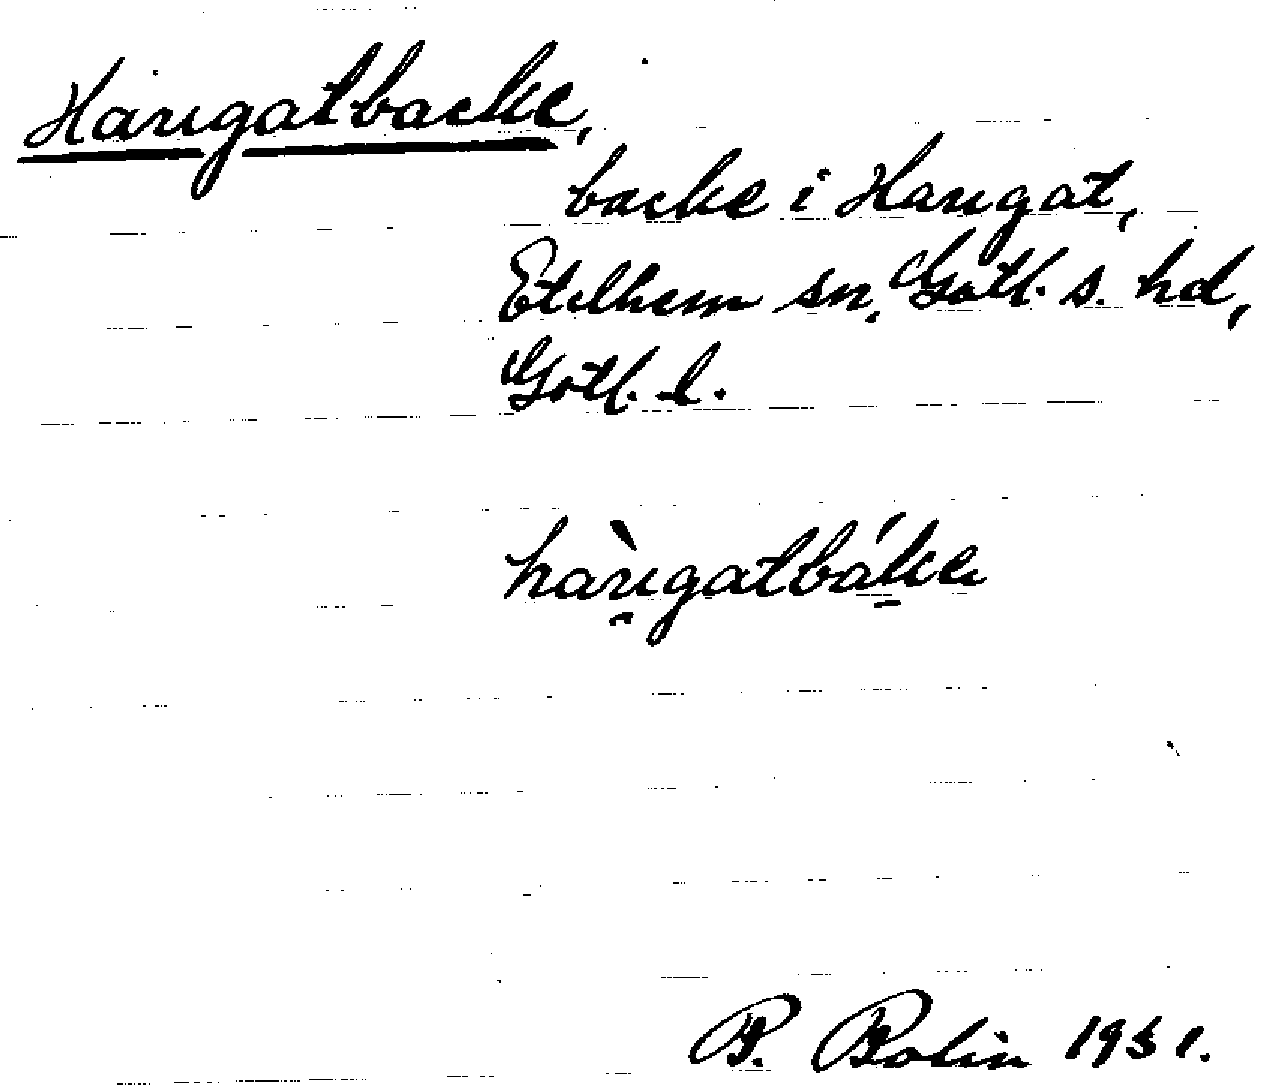 Harugatbacke,
backe i Harugat,
Etelhem sn, Gotl. s. hd,
Gotl. l.
hàrugatbáke
B. Bolin 1931.